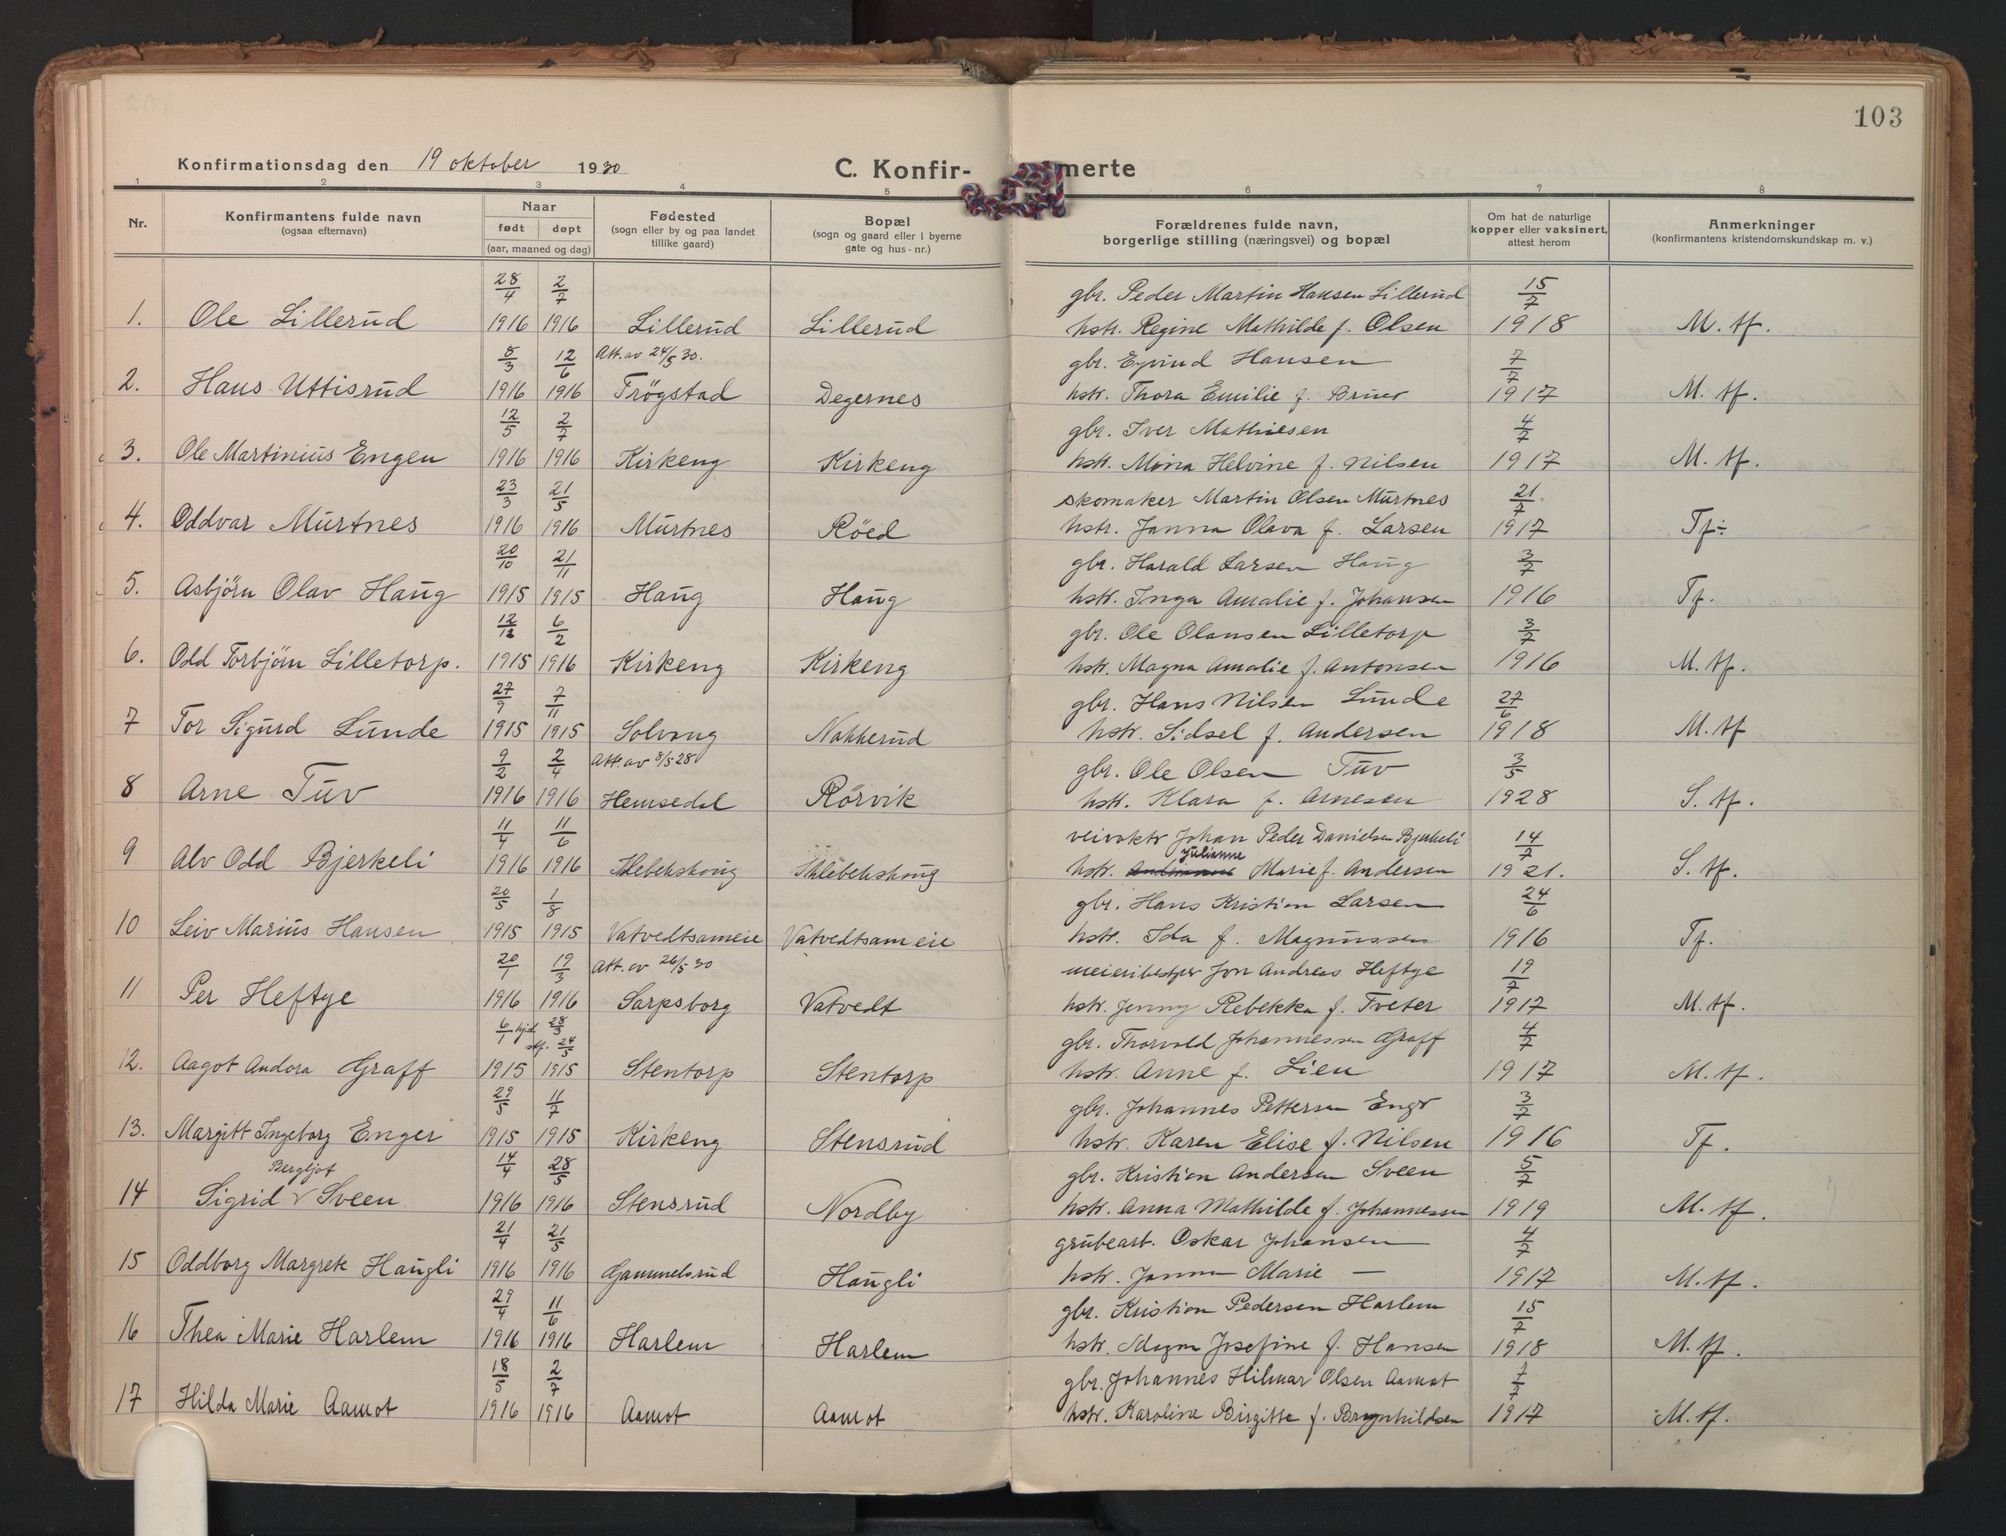 103
Konfirmationsdag den 19 oktober 1930
C. Konfirmerte
1 2 3 4 5 6 7 8
Nr. Konfirmantens fulde navn (ogsaa efternavn) Naar født døpt (aar, maaned og dag) Fødested (sogn eller by og paa landet tillike gaard) Bopæl (sogn og gaard eller i byerne gate og hus-nr.) Forældrenes fulde navn, borgerlige stilling (næringsvei) og bopæl Om hat de naturlige kopper eller vaksinert, attest herom Anmerkninger (konfirmantens kristendomskundskap m. v.)
28/4 2/7 gbr. Peder Martin Hansen Lillerud 15/7
1. Ole Lillerud 1916 1916 Lillerud Lillerud hstr. Regine Mathilde f. Olsen 1918 M. tf.
5/3 12/6 Att. av 24/5 30. gbr. Eyvind Hansen 7/7
2. Hans Uttisrud 1916 1916 Trögstad Degernes hstr. Thora Emilie f. 1917 M. tf.
12/5 2/7 gbr. Iver Mathiesen 4/7
3. Ole Martinius Engen 1916 1916 Kirkeng Kirkeng hstr. Mina Helvine f. Nilsen 1917 M. tf.
23/3 21/5 skomaker Martin Olsen Murtnes 21/7
4. Oddvar Murtnes 1916 1916 Murtnes Röed hstr. Janna Olava f. Larsen 1917 Tf÷
20/10 21/11 gbr. Harald Larsen Haug 3/7
5. Asbjörn Olav Haug 1915 1915 Haug Haug hstr. Inga Amalie f. Johansen 1916 Tf.
12/12 6/2 gbr. Ole Olansen Lilletorp 3/7
6. Odd Torbjörn Lilletorp. 1915 1916 Kirkeng Kirkeng hstr. Magna Amalie f. Antonsen 1916 M. tf.
27/9 7/11 gbr. Hans Nilsen Lunde 27/6
7 Tor Sigurd Lunde 1915 1915 Solvang Nakkerud hstr. Sidsel f. Andersen 1918 M. tf
9/2 2/4 Att. av 8/5 28 gbr. Ole Olsen Tuv 3/5
8 Arne Tuv 1916 1916 Hemsedal Rörvik hstr. Klara f. Arnesen 1928 S. tf.
11/4 11/6 veivoktr Johan Peder Danielsen Bjerkeli 14/7
Julianne
9 Alv Odd Bjerkeli 1916 1916 hstr. Marie f. Andersen 1921. S. tf.
20/5 1/8 gbr. Hans Kristian Larsen 24/6
10 Leiv Marius Hansen 1915 1915 Vatvedtsameie Vatvedtsameie hstr. Ida f. Magnussen 1916 Tf.
20/1 19/3 Att. av 26/5 30 meieribestyr Jon Andreas Heftye 19/7
11 Per Heftye 1916 1916 Sarpsborg Vatvedt hstr. Jenny Rebekka f. Tveter 1917 M. tf.
6/1 hjd. 28/3 stf. 24/5 gbr. Thorvald Johannessen Graff 4/7
12. Aagot Andora Graff 1915 1915 Stentorp Stentorp hstr. Anne f. Lien 1917 M. tf.
29/5 11/7 gbr. Johannes Pettersen Enger 3/7
13. Margitt Ingeborg Enger 1915 1915 Kirkeng Stensrud hstr. Karen Elise f. Nilsen 1916 Tf.
Bergljot 14/4 28/5 gbr. Kristian Andersen Sveen 5/7
14 Sigrid v Sveen 1916 1916 Stensrud Nordby hstr. Anna Mathilde f. Johannessen 1919 M. tf.
21/4 21/5 grubearb. Oskar Johansen 4/7
15 Oddborg Margrete Haugli 1916 1916 Gammelsrud Haugli hstr. Janna Marie — 1917 M. tf.
29/4 11/6 gbr. Kristian Pedersen Harlem 15/7
16 Thea Marie Harlem 1916 1916 Harlem Harlem hstr. Josefine f. Hansen 1918 M. tf.
18/5 2/7 gbr. Johannes Hilmar Olsen Aamot 7/7
17 Hilda Marie Aamot 1916 1916 Aamot Aamot hstr. Karoline Birgitte f. Brynhildsen 1917 M. tf.